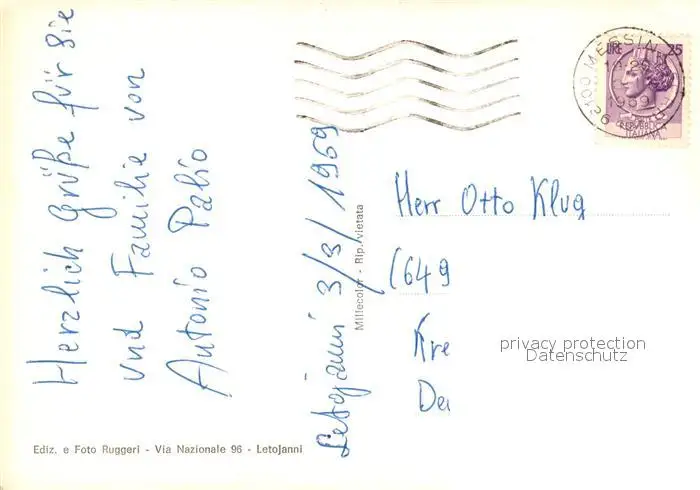 Herzlich Grüße für Sie
und Familie von
Antonio Palio
Letojanni 3/3/1969
Millecolor - Rip. vietata
LIRE 25
98100 MESSINA
REPUBBLICA
ITALIANA
Herr Otto Klug
(649
Kre
De
privacy protection
Datenschutz
Ediz. e Foto Ruggeri - Via Nazionale 96 - Letojanni